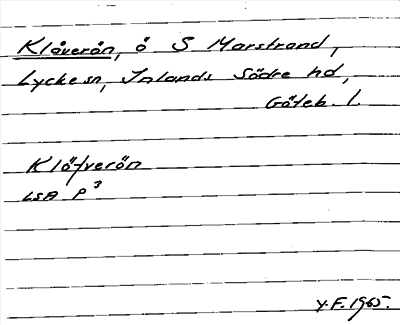 Klåverön, ö S Marstrand,
Lycke sn, Inlands Södre hd,
Göteb. l.
Klöfverön
LSA P3
Y.F. 1965.